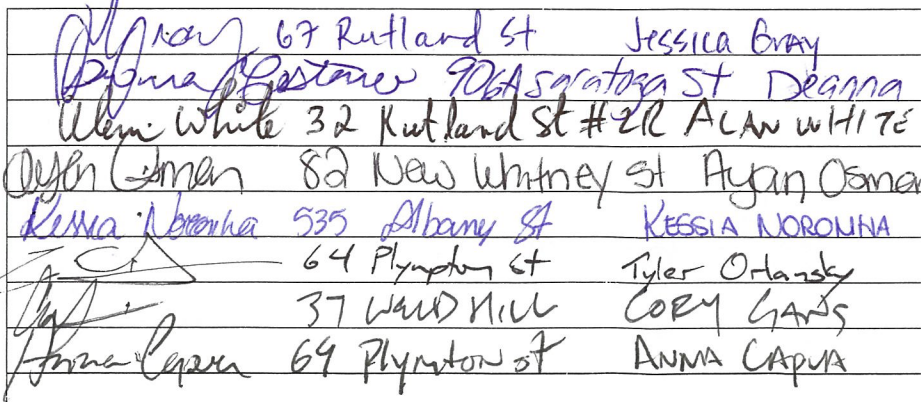 Gray 67 Rutland St Jessica Gray
906A Saratoga St Deanna
White 32 Rutland St #2R ALAN WHITE
Ayan Osman 82 New Whitney St Ayan Osman
Kessia Noronha 535 Albany St KESSIA NORONHA
64 Plympton St Tyler Orlansky
37 WELD HILL CORY GANS
Anna Capua 64 Plympton St ANNA CAPUA